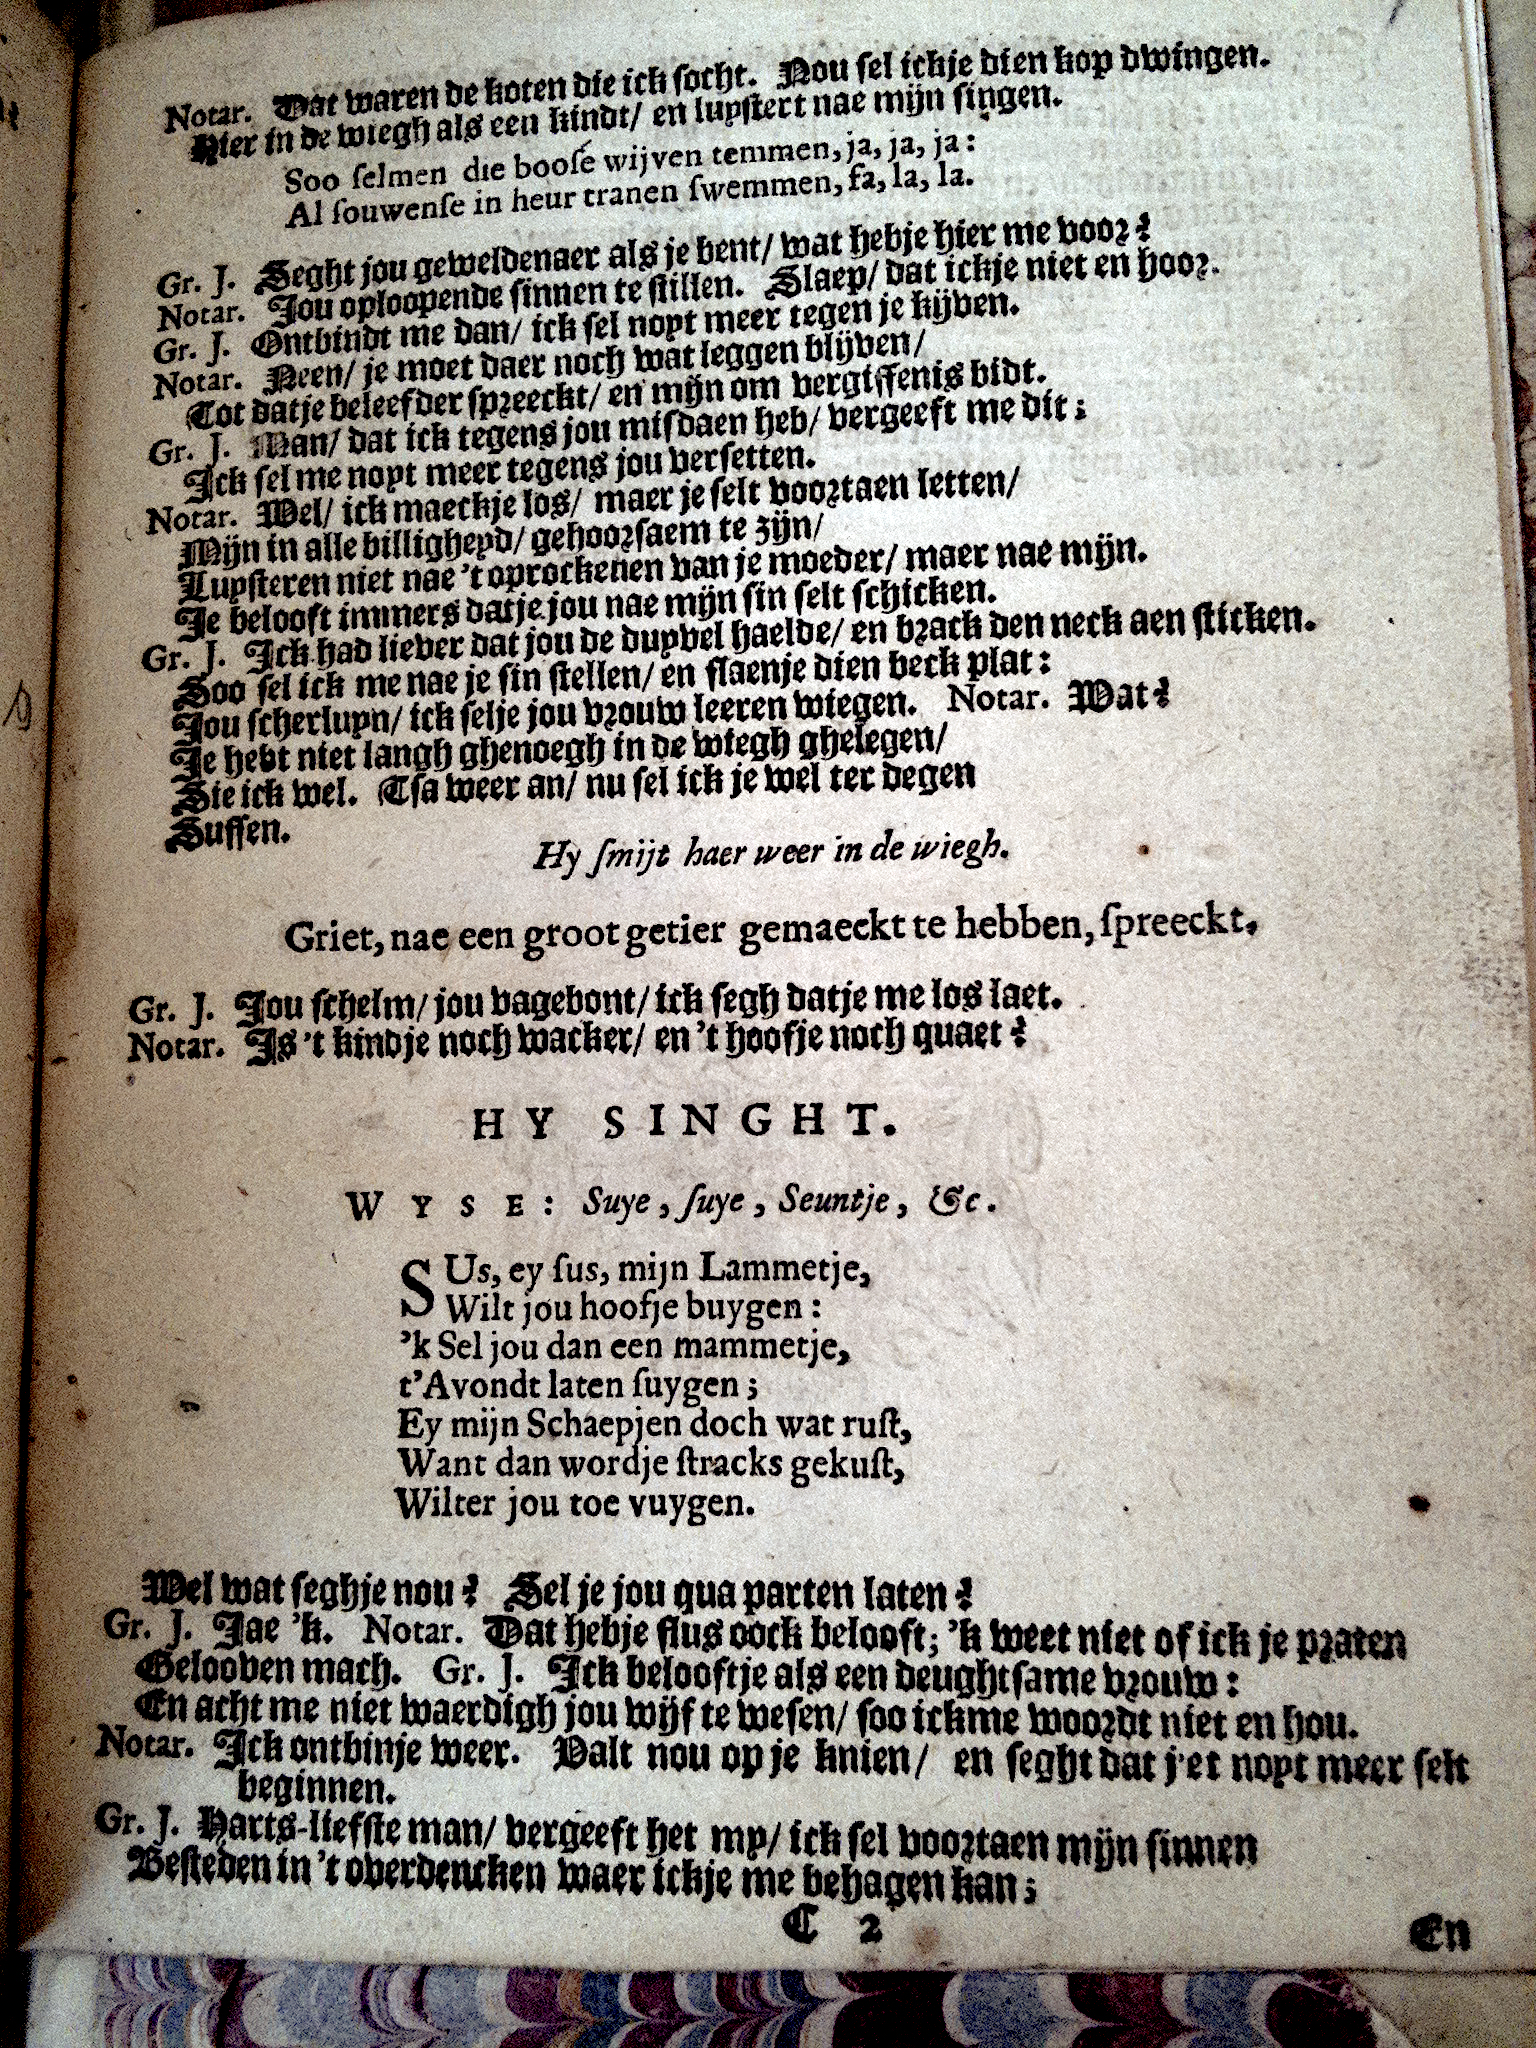 Notar. Dat waren de koten die ick socht. Nou sel ickje dien kop dwingen.
Hier in de wiegh als een kindt/ en luystert nae mijn singen.
Soo selmen die boose wijven temmen, ja, ja, ja:
Al souwense in heur tranen swemmen, fa, la, la.
Gr. J. Seght jou geweldenaer als je bent/ wat hebje hier me voor?
Notar. Jou oploopende sinnen te stillen. Slaep/ dat ickje niet en hoor.
Gr. J. Ontbindt me dan/ ick sel noyt meer tegen je kijven.
Notar. Neen/ je moet daer noch wat leggen blijven/
Tot datje beleefder spreeckt/ en mijn om vergiffenis bidt.
Gr. J. Man/ dat ick tegens jou misdaen heb/ vergeeft me dit;
Ick sel me noyt meer tegens jou versetten.
Notar. Wel/ ick maeckje los/ maer je selt voortaen letten/
Mijn in alle billigheyd/ gehoorsaem te zijn/
Luysteren niet nae 't oprockenen van je moeder/ maer nae mijn.
Je belooft immers datje jou nae mijn sin selt schicken.
Gr. J. Ick had liever dat jou de duyvel haelde/ en brack den neck aen sticken.
Soo sel ick me nae je sin stellen/ en slaenje dien beck plat:
Jou scherluyn/ ick selje jou vrouw leeren wiegen. Notar. Wat?
Je hebt niet langh ghenoegh in de wiegh ghelegen/
Sie ick wel. Tsa weer an/ nu sel ick je wel ter degen
Sussen.
Hy smijt haer weer in de wiegh.
Griet, nae een groot getier gemaeckt te hebben, spreeckt.
Gr. J. Jou schelm/ jou vagebont/ ick segh datje me los laet.
Notar. Is 't kindje noch wacker/ en 't hoofje noch quaet?
HY SINGHT.
WYSE: Suye, suye, Seuntje, &c.
SUs, ey sus, mijn Lammetje,
Wilt jou hoofje buygen:
'k Sel jou dan een mammetje,
t'Avondt laten suygen;
Ey mijn Schaepjen doch wat rust,
Want dan wordje stracks gekust,
Wilter jou toe vuygen.
Wel wat seghje nou? Sel je jou qua parten laten?
Gr. J. Jae 'k. Notar. Dat hebje flus oock belooft; 'k weet niet of ick je praten
Gelooven mach. Gr. J. Ick belooftje als een deughtsame vrouw:
En acht me niet waerdigh jou wijf te wesen/ soo ickme woordt niet en hou.
Notar. Ick ontbinje weer. Valt nou op je knien/ en seght dat j'et noyt meer selt
beginnen.
Gr. J. Harts-liefste man/ vergeeft het my/ ick sel voortaen mijn sinnen
Besteden in 't overdencken waer ickje me behagen kan;
C 2
En